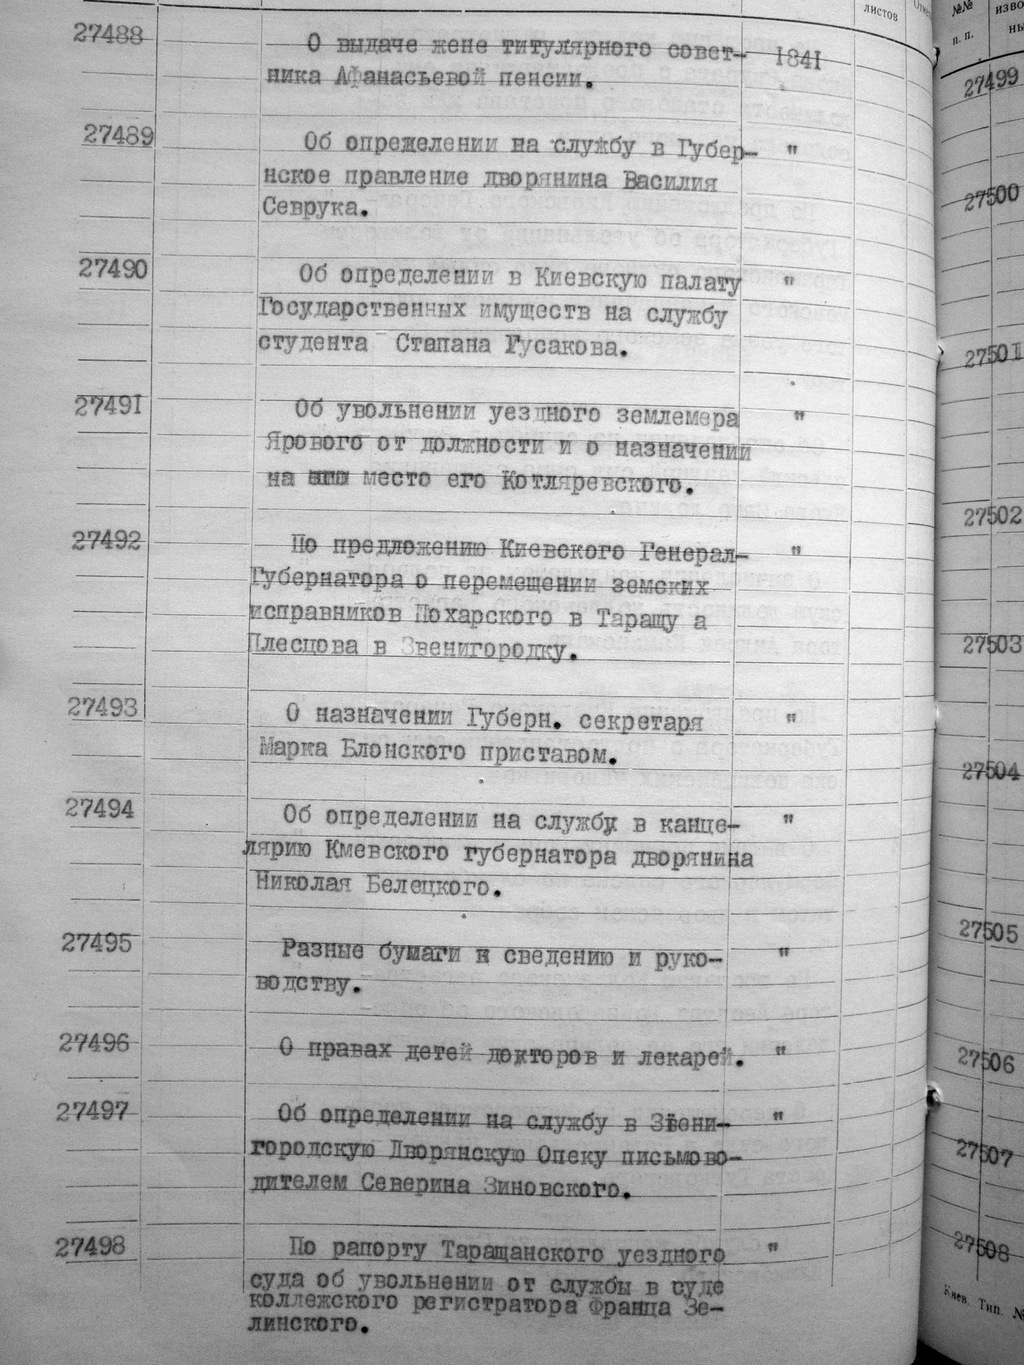 листов
№№
п. п.
27488
О выдаче жене титулярного совет-
1841
ника Афанасьевой пенсии.
27489
Об определении на службу в Губер-
"
нское правление дворянина Василия
Севрука.
27490
Об определении в Киевскую палату
"
Государственных имуществ на службу
студента Стапана Гусакова.
27491
Об увольнении уездного землемера
"
Ярового от должности и о назначении
на место его Котляревского.
27492
По предложению Киевского Генерал-
"
Губернатора о перемещении земских
исправников Похарского в Таращу а
Плесцова в Звенигородку.
27493
О назначении Губерн. секретаря
"
Марка Блонского приставом.
27494
Об определении на службу в канце-
"
лярию Кмевского губернатора дворянина
Николая Белецкого.
27495
Разные бумаги к сведению и руко-
"
водству.
27496
О правах детей докторов и лекарей.
"
27497
Об определении на службу в Звени-
"
городскую Дворянскую Опеку письмово-
дителем Северина Зиновского.
27498
По рапорту Таращанского уездного
"
суда об увольнении от службы в суде
коллежского регистратора Франца Зе-
линского.
27499
27500
27501
27502
27503
27504
27505
27506
27507
27508
Киев. Тип. №